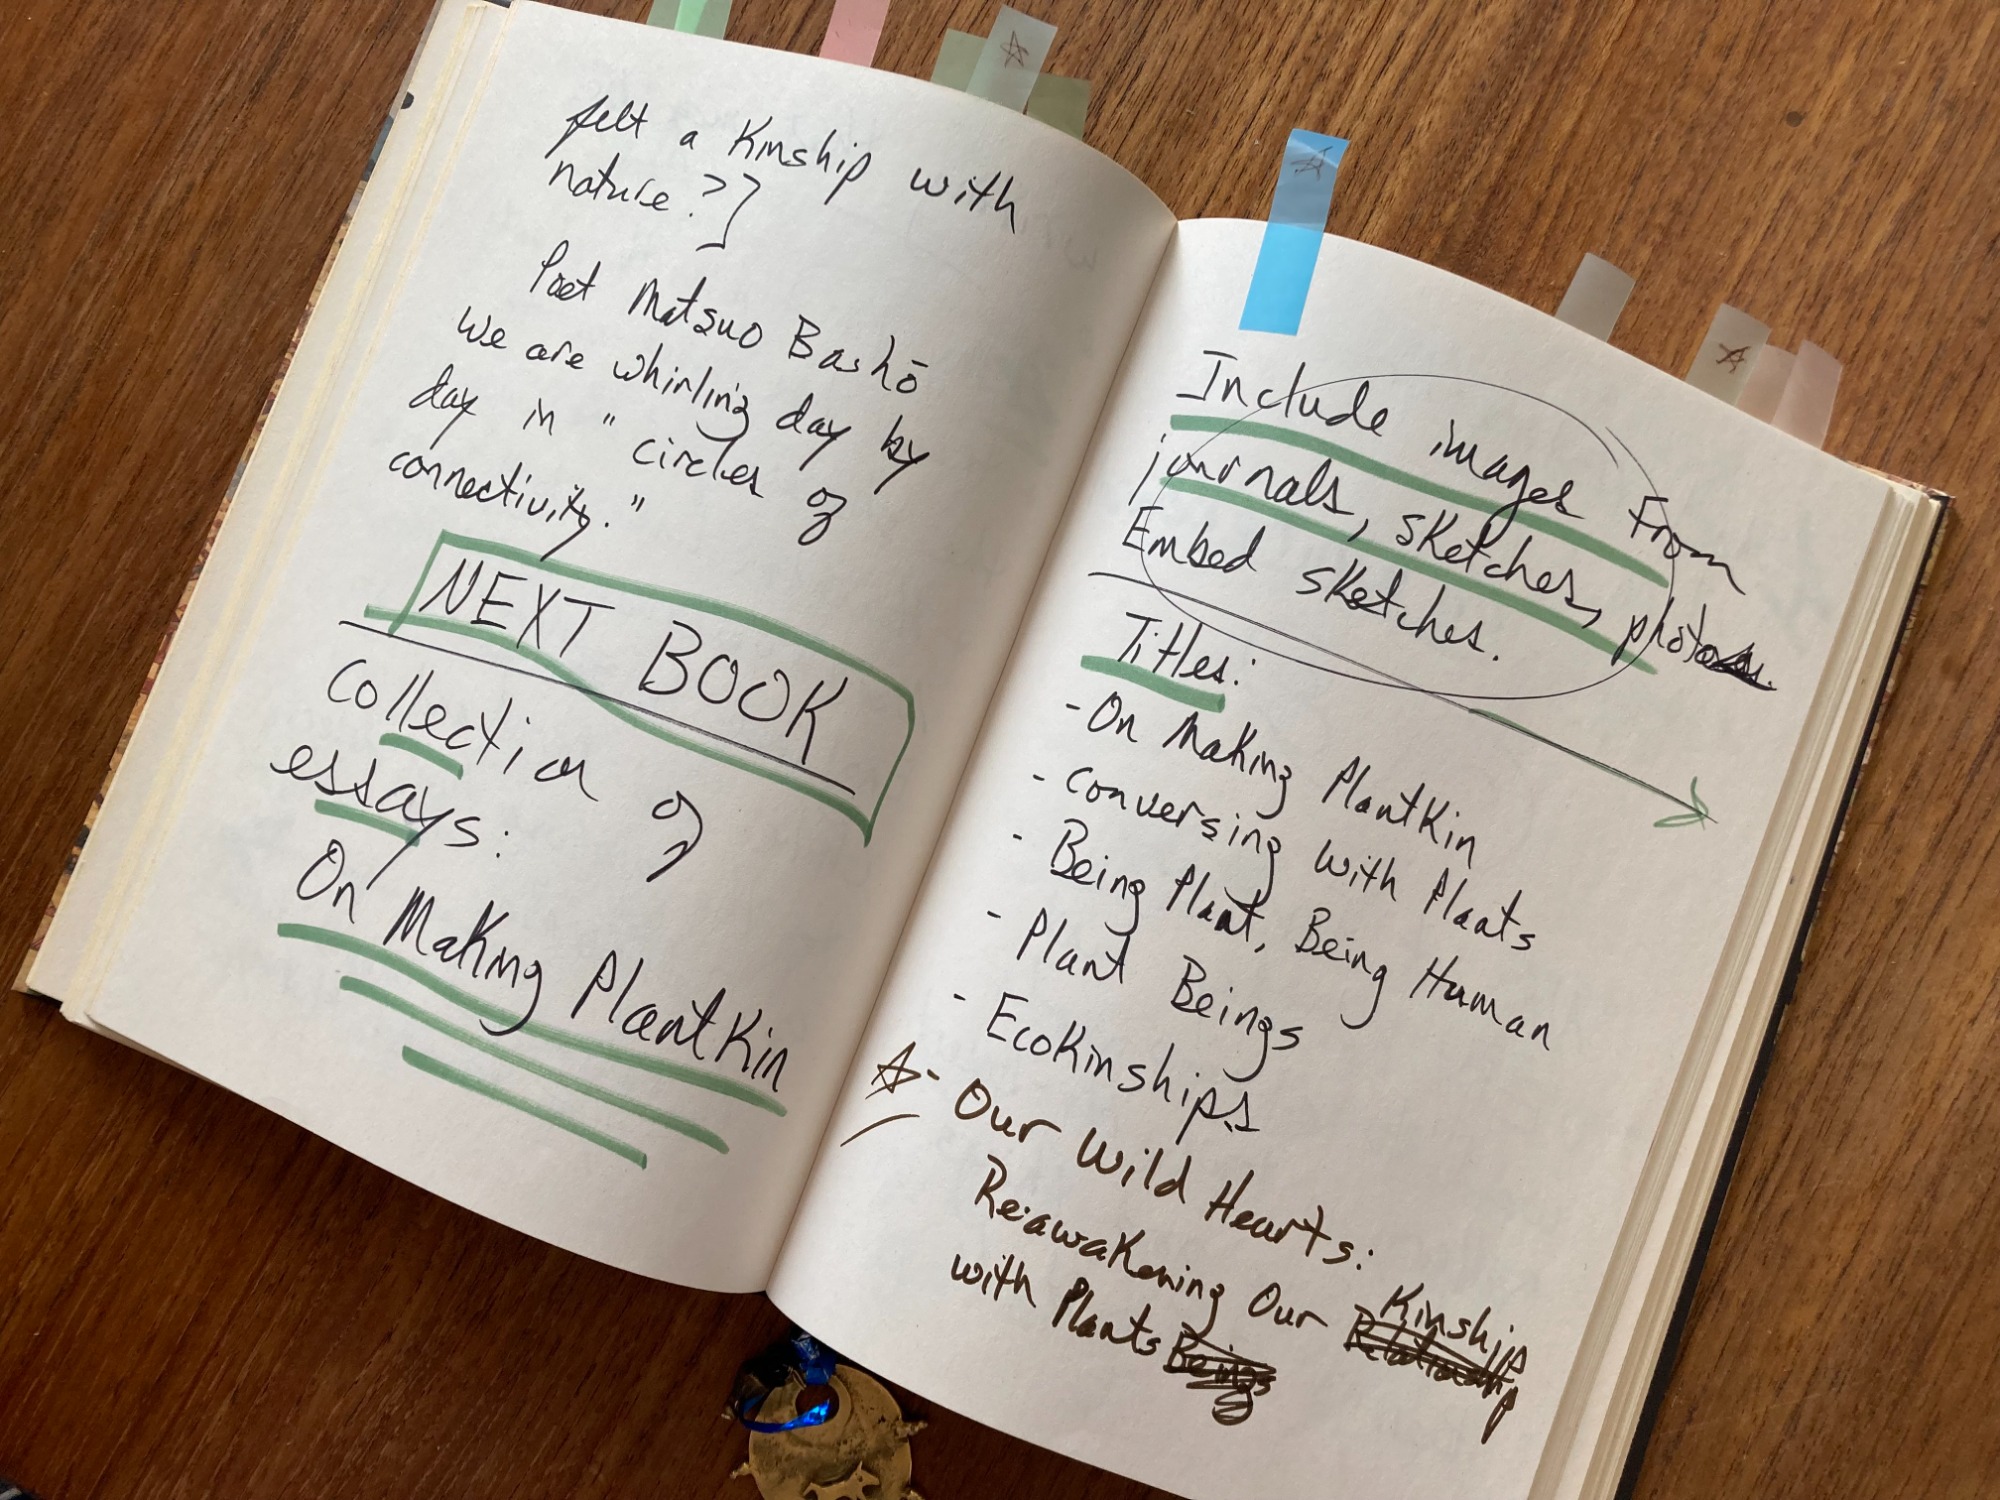 felt a Kinship with
nature?]
Poet Matsuo Bashō
We are whirling day by
day in "circles of
connectivity."
NEXT BOOK
Collection of
essays:
On Making PlantKin
Include images From
journals, sketches, photos.
Embed sketches.
Titles:
- On Making PlantKin
- Conversing with Plants
- Being Plant, Being Human
- Plant Beings
- EcoKinships
☆ - Our Wild Hearts:
Reawakening Our Kinship Relationship
with Plants Beings